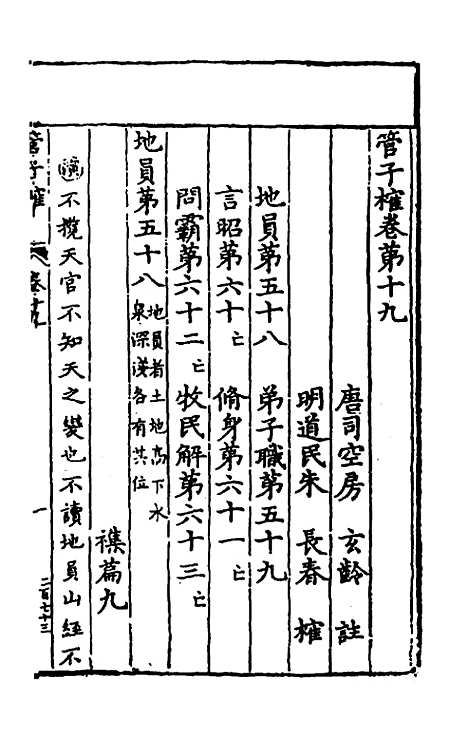 管子榷卷第十九
唐司空房 玄齡 註
明道民朱 長春 榷
地員第五十八 弟子職第五十九
言昭第六十亡 脩身第六十一亡
問霸第六十二亡 牧民解第六十三亡
地員第五十八 地員者土地高下水泉深淺各有其位
襍篇九
不攬天官不知天之變也不讀地員山經不
管子榷
一
二百七十三